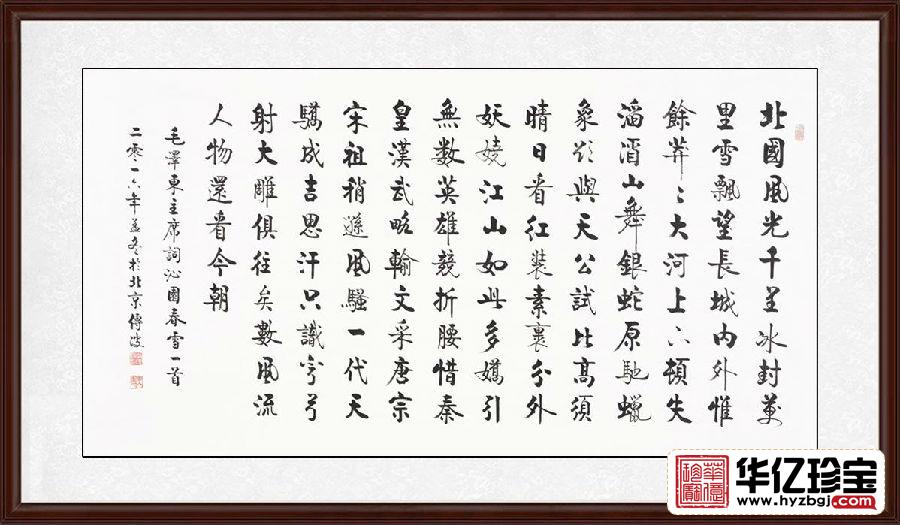 北國風光千里冰封萬
里雪飄望長城內外惟
餘莽〻大河上下頓失
滔滔山舞銀蛇原馳蠟
象欲與天公試比高須
晴日看紅裝素裹分外
妖嬈江山如此多嬌引
無數英雄競折腰惜秦
皇漢武略輸文采唐宗
宋祖稍遜風騷一代天
驕成吉思汗只識彎弓
射大雕俱往矣數風流
人物還看今朝
毛澤東主席詞沁園春雪一首
二零一六年孟冬於北京傳波
华亿珍宝
www.hyzbgj.com